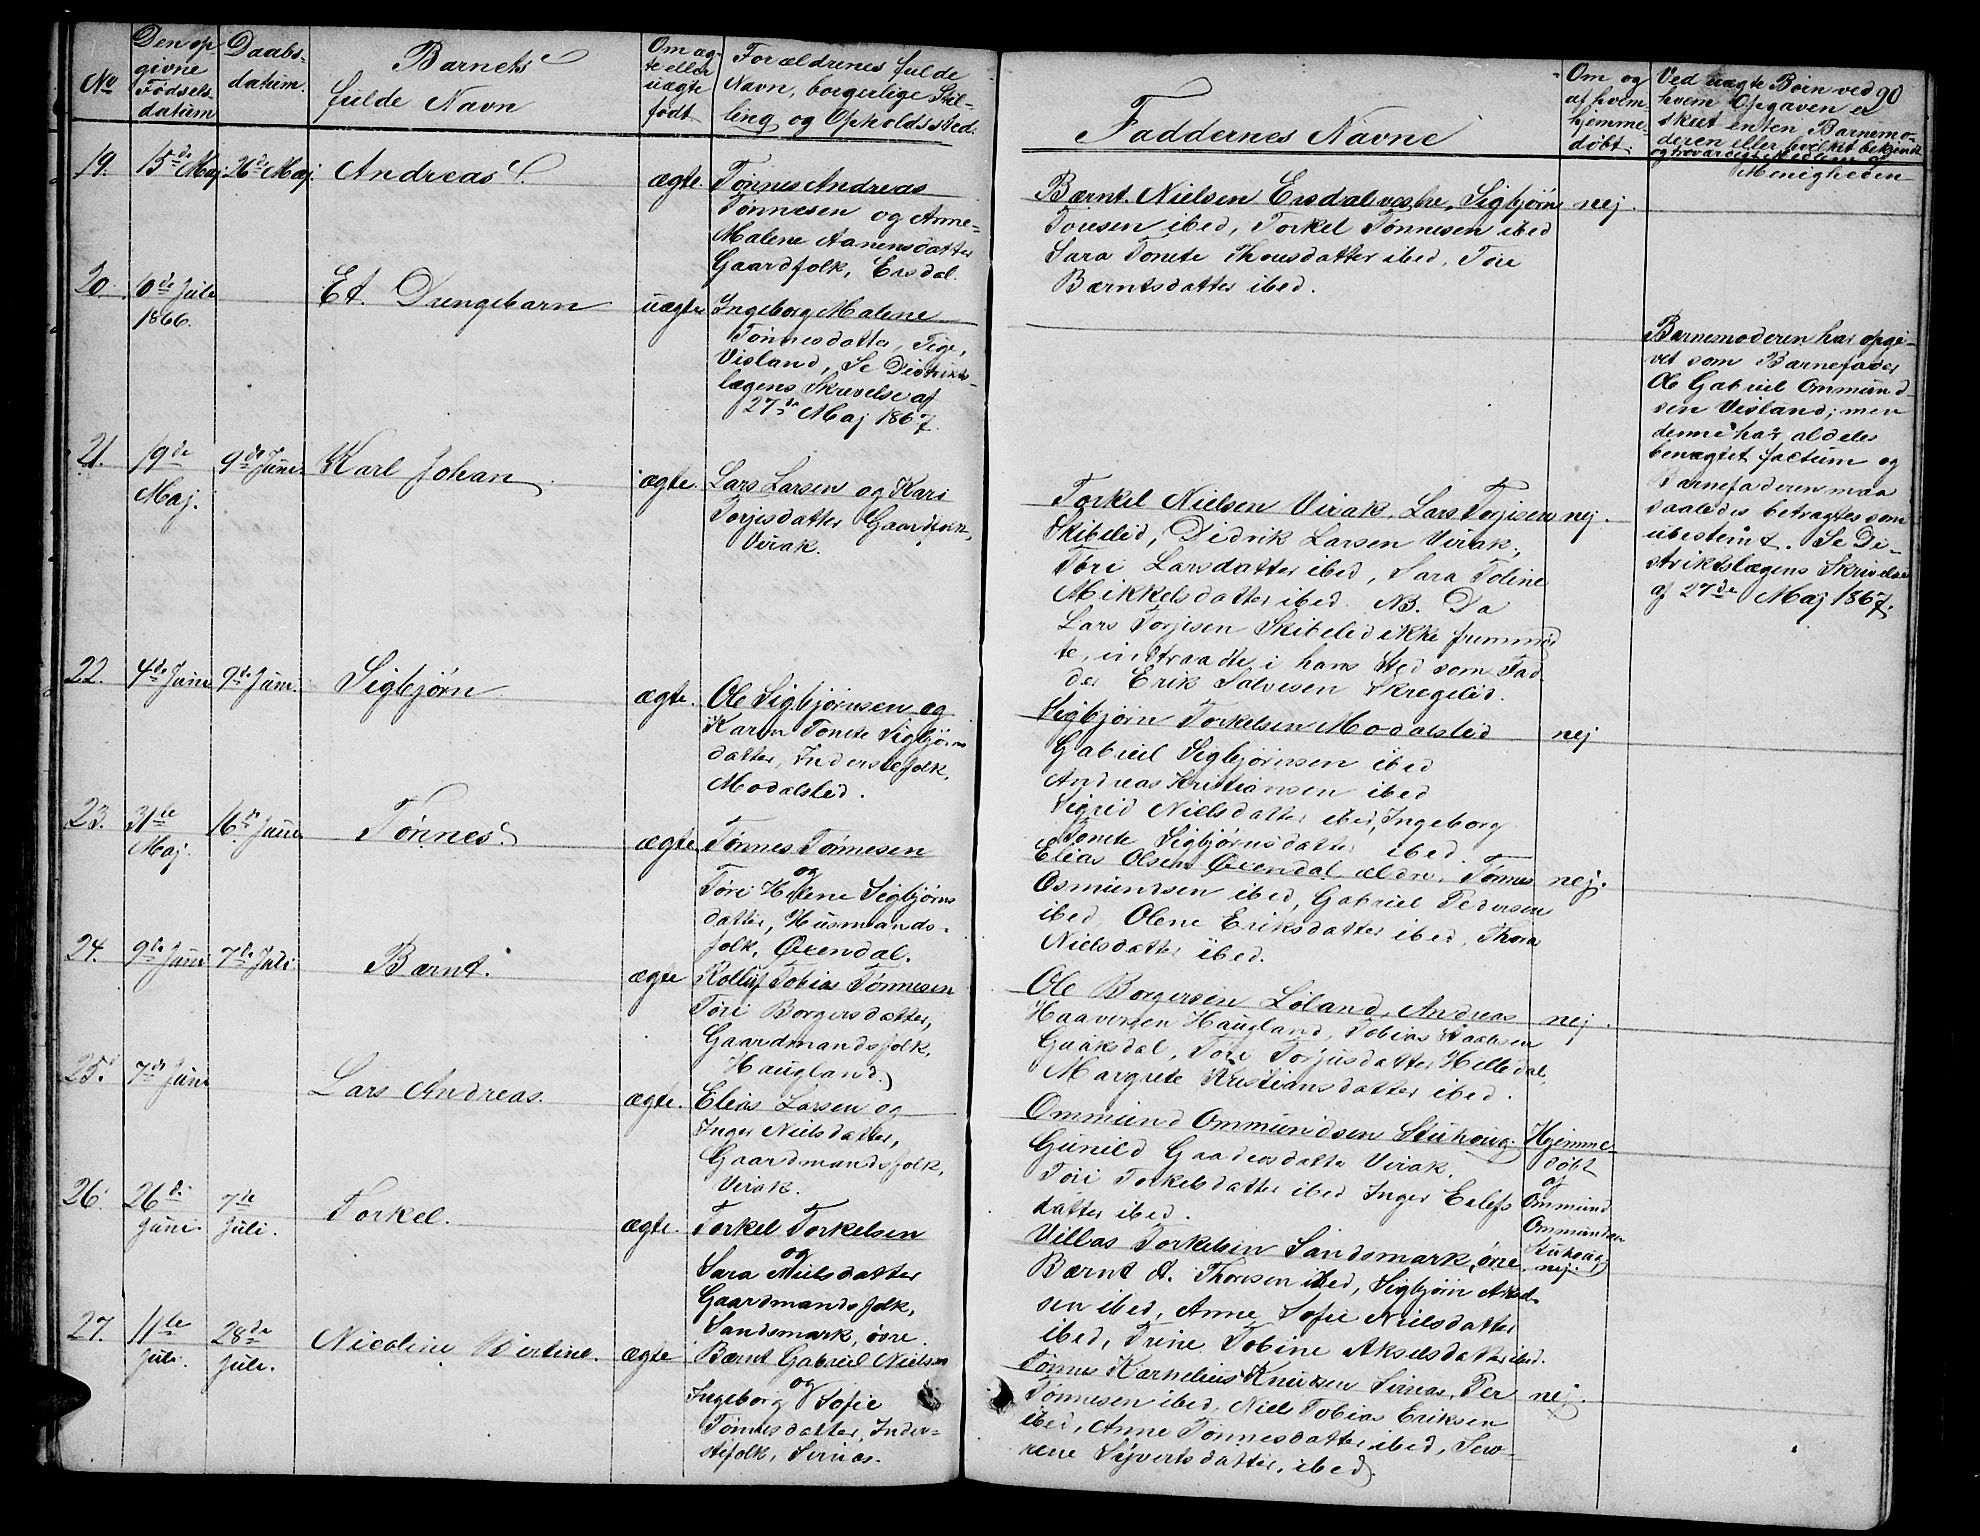 No
Den op
givne
Fødsels
datum
Daabs-
datum.
Barnets
fulde Navn
Om æg-
te eller
uægte
født
Forældrenes fulde
Navn, borgerlige Stil-
ling og Opholdssted.
Faddernes Navne
Om og
af hvem
hjemme-
døbt.
Ved uægte Børn ved
hvem Opgaven er
skeet enten Barnemo-
deren eller hvilket bekjendt
og troværdigt Medlem af
Menigheden
90
19.
15de Maj.
26de Maj.
Andreas
ægte.
Tønnes Andreas
Tønnesen og Anne-
Malene Aanensdatter
Gaardfolk, Ersdal.
Bærnt. Nielsen Ersdal vestre, Sigbjørn
Tonesen ibed, Torkel Tønnesen ibed
Sara Tonete Thonsdatter ibed, Tøre
Bærntsdatter ibed.
nej.
20.
10de Juli
1866.
Et. Drengebarn
uægte
Ingeborg Malene
Tønnesdatter, Pige,
Visland, Se Distrikts-
lægens Skrivelse af
27de Maj 1867.
Barnemoderen har opgi-
vet som Barnefader
Ole Gabriel Ommund-
sen Visland; men
denne har aldeles
benægtet factum og
Barnefaderen maa
saaledes betragtes som
ubestemt. Se Di-
striktslægens Skrivelse
af 27de Maj 1867.
21.
19de
Maj.
9de Juni
Karl Johan
ægte.
Lars Larsen og Kari
Torjesdatter Gaardfolk,
Virak.
Torkel Nielsen Virak, Lars Torjesen
Skibelid, Didrik Larsen Virak,
Tøri Larsdatter ibed, Sara Toline
Mikkelsdatter ibed. NB. Da
Lars Torjesen Skibelid ikke fremmød
te, indtraadte i hans Sted som Fad
der Erik Salvesen Skregelid.
nej.
22.
4de Juni
9de Juni.
Sigbjørn
ægte.
Ole Sigbjørnsen og
Karen Tonete Sigbjørns
datter, Inderstefolk,
Modalslid.
Sigbjørn Torkelsen Modalslid
Gabriel Sigbjørnsen ibed
Andreas Kristiansen ibed
Sigrid Nielsdatter ibed, Ingeborg
Tonete Sigbjørnsdatter ibed.
nej
23.
31te
Maj.
16de Juni
Tønnes
ægte
Tønnes Tønnesen
og
Tøri Helene Sigbjørns
datter, Husmands-
folk, Øxendal.
Elias Olsen Øxendal ældre, Tønnes
Osmundsen ibed, Gabriel Pedersen
ibed, Olene Eriksdatter ibed, Thora
Nielsdatter ibed.
nej.
24.
9de Juni
7de Juli
Bærnt.
ægte
Rolluf Tobias Tønnesen
Tøri Borgersdatter,
Gaardmandsfolk,
Haugland.
Ole Borgersen Løland, Andreas
Haaversen Haugland, Tobias
Tøri Torjusdatter Helledal,
Margrete Kristiansdatter ibed.
nej.
25.
7de Juni
Lars Andreas.
ægte.
Elias Larsen og
Inger Nielsdatter,
Gaardmandsfolk,
Virak.
Ommund Ommundsen Stuhoug.
Gunild Virak.
Tøri Torkelsdatter ibed Inger Eelefs
datter ibed.
Hjemme-
døbt
af
Ommund
Ommundsen
Stuhoug
26.
26de
Juni.
7de
Juli.
Torkel.
ægte.
Torkel Torkelsen
og
Sara Nielsdatter
Gaardmandsfolk,
Sandsmark, øvre.
Villas Torkelsen Sandsmark, øvre
Bærnt A. Thorsen ibed, Sigbjørn Aksel-
sen ibed, Anne Sofie Nielsdatter
ibed, Trine Tobine Akselsdatter ibed.
nej.
27.
11te
Juli.
28de
Juli.
Nicoline Birtine.
ægte
Bærnt Gabriel Nielsen
og
Ingeborg Sofie
Tønnesdatter, Inder-
stefolk, Sirnæs.
Tønnes Karnelius Knudsen Sirnæs, Per
Tønnesen ibed, Niels Tobias Eriksen
ibed, Anne Tønnesdatter ibed, Seve-
rene Sijvertsdatter, ibed.
nej.